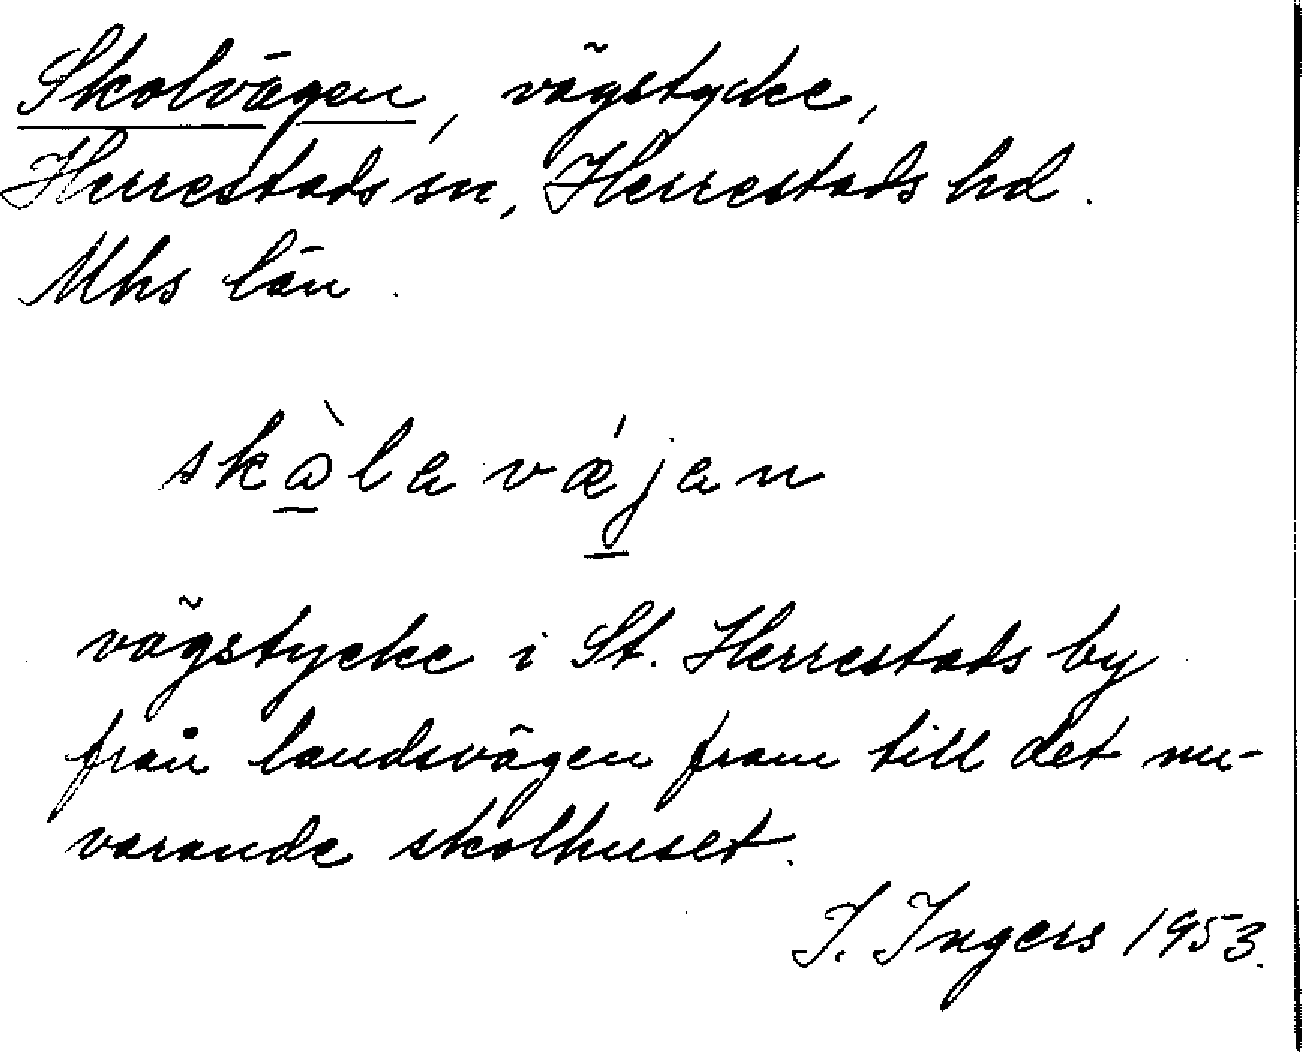 Skolvägen, vägstycke,
Herrestads sn, Herrestads hd.
Mhs län.
skòla væ´jan
vägstycke i St. Herrestads by
från landsvägen fram till det nu-
varande skolhuset.
I. Ingers 1953.